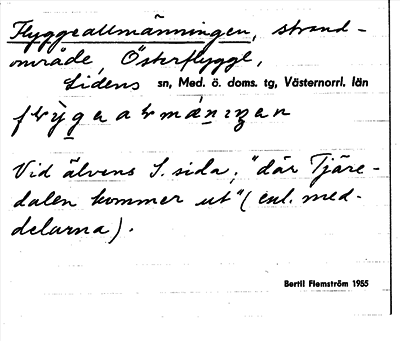 Flyggeallmänningen, strand-
område, Österflygge,
Lidens sn, Med. ö. doms. tg, Västernorrl. län
Vid älvens S. sida, "där Tjäre-
dalen kommer ut" (enl. med-
delarna).
Bertil Flemström 1955